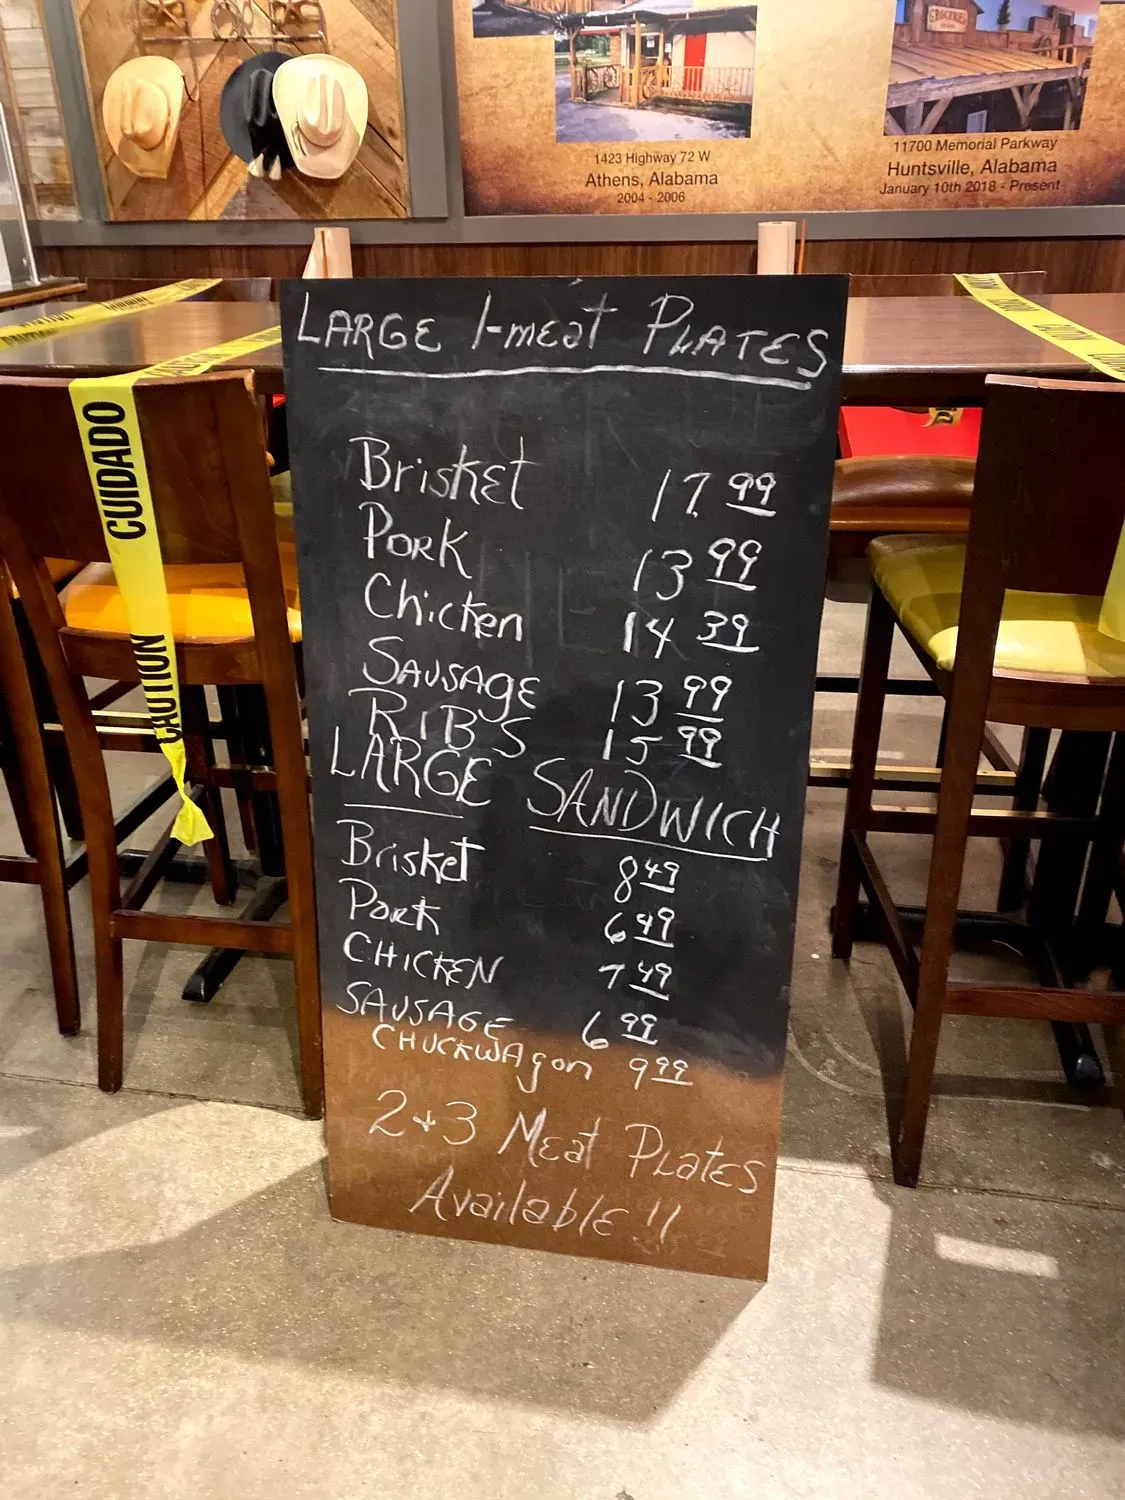 GROCERIES
1423 Highway 72 W
Athens, Alabama
2004 - 2006
11700 Memorial Parkway
Huntsville, Alabama
January 10th 2018 - Present
CUIDADO
CAUTION
LARGE 1-meat PLATES
Brisket 17.99
Pork 13 99
Chicken 14 39
Sausage 13 99
RIB'S 15 99
LARGE SANDWICH
Brisket 8 49
Pork 6 49
CHICKEN 7 49
SAUSAGE 6 99
CHUCKWAgon 9 99
2+3 Meat Plates
Available !!